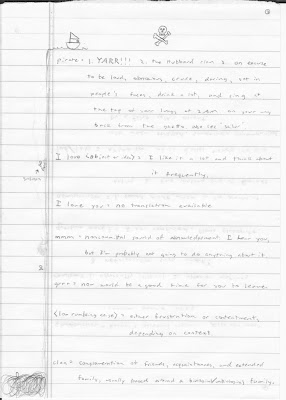 pirate = 1. YARR!!! 2. the Husband clan 3. an excuse
to be loud, obnoxious, crude, daring, get in
people's faces, drink a lot, and sing at
the top of your lungs at 2 A.M. on your way
back from the
I love (object or idea) = I like it a lot and think about
it frequently.
I love you = no translation available
mmm = noncommittal sound of acknowledgement. I hear you,
but I'm probably not going to do anything about it.
grrr = now would be a good time for you to leave.
(low rumbling noise) = either frustration or contentment,
depending on context.
clan = conglomeration of friends, acquaintances, and extended
family, usually based around a family.